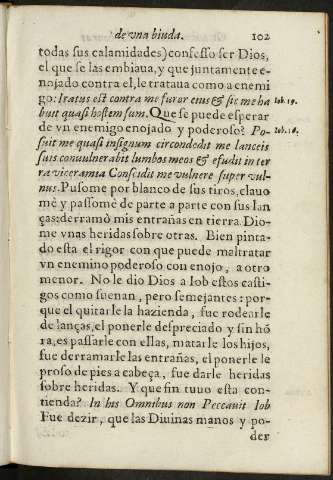 de vna biuda. 102
todas sus calamidades) confesso ser Dios,
el que se las embiaua, y que juntamente e-
nojado contra el, le trataua como a enemi
go: Iratus est contra me furor eius & sic me ha Iob. 19.
buit quasi hostem sum. Que se puede esperar
de vn enemigo enojado y poderoso? Po- Iob. 16.
suit me quasi insignum circondedit me lanceis
suis convulnerabit lumbos meos & efudit in ter
ra viceramia Conscidit me vulnere super vul-
nus. Pusome por blanco de sus tiros, clauo
me y passome de parte a parte con sus lan
ças: derramò mis entrañas en tierra. Dio-
me vnas heridas sobre otras. Bien pinta-
do esta el rigor con que puede maltratar
vn enemino poderoso con enojo, a otro
menor. No le dio Dios a Iob estos casti-
gos como suenan, pero semejantes: por-
que el quitarle la hazienda, fue rodearle
de lanças, el ponerle despreciado y sin hó
ra, es passarle con ellas, matarle los hijos,
fue derramarle las entrañas, el ponerle le
proso de pies a cabeça, fue darle heridas
sobre heridas. Y que fin tuuo esta con-
tienda? In his Omnibus non Peccauit Iob
Fue dezir, que las Diuinas manos y po-
der